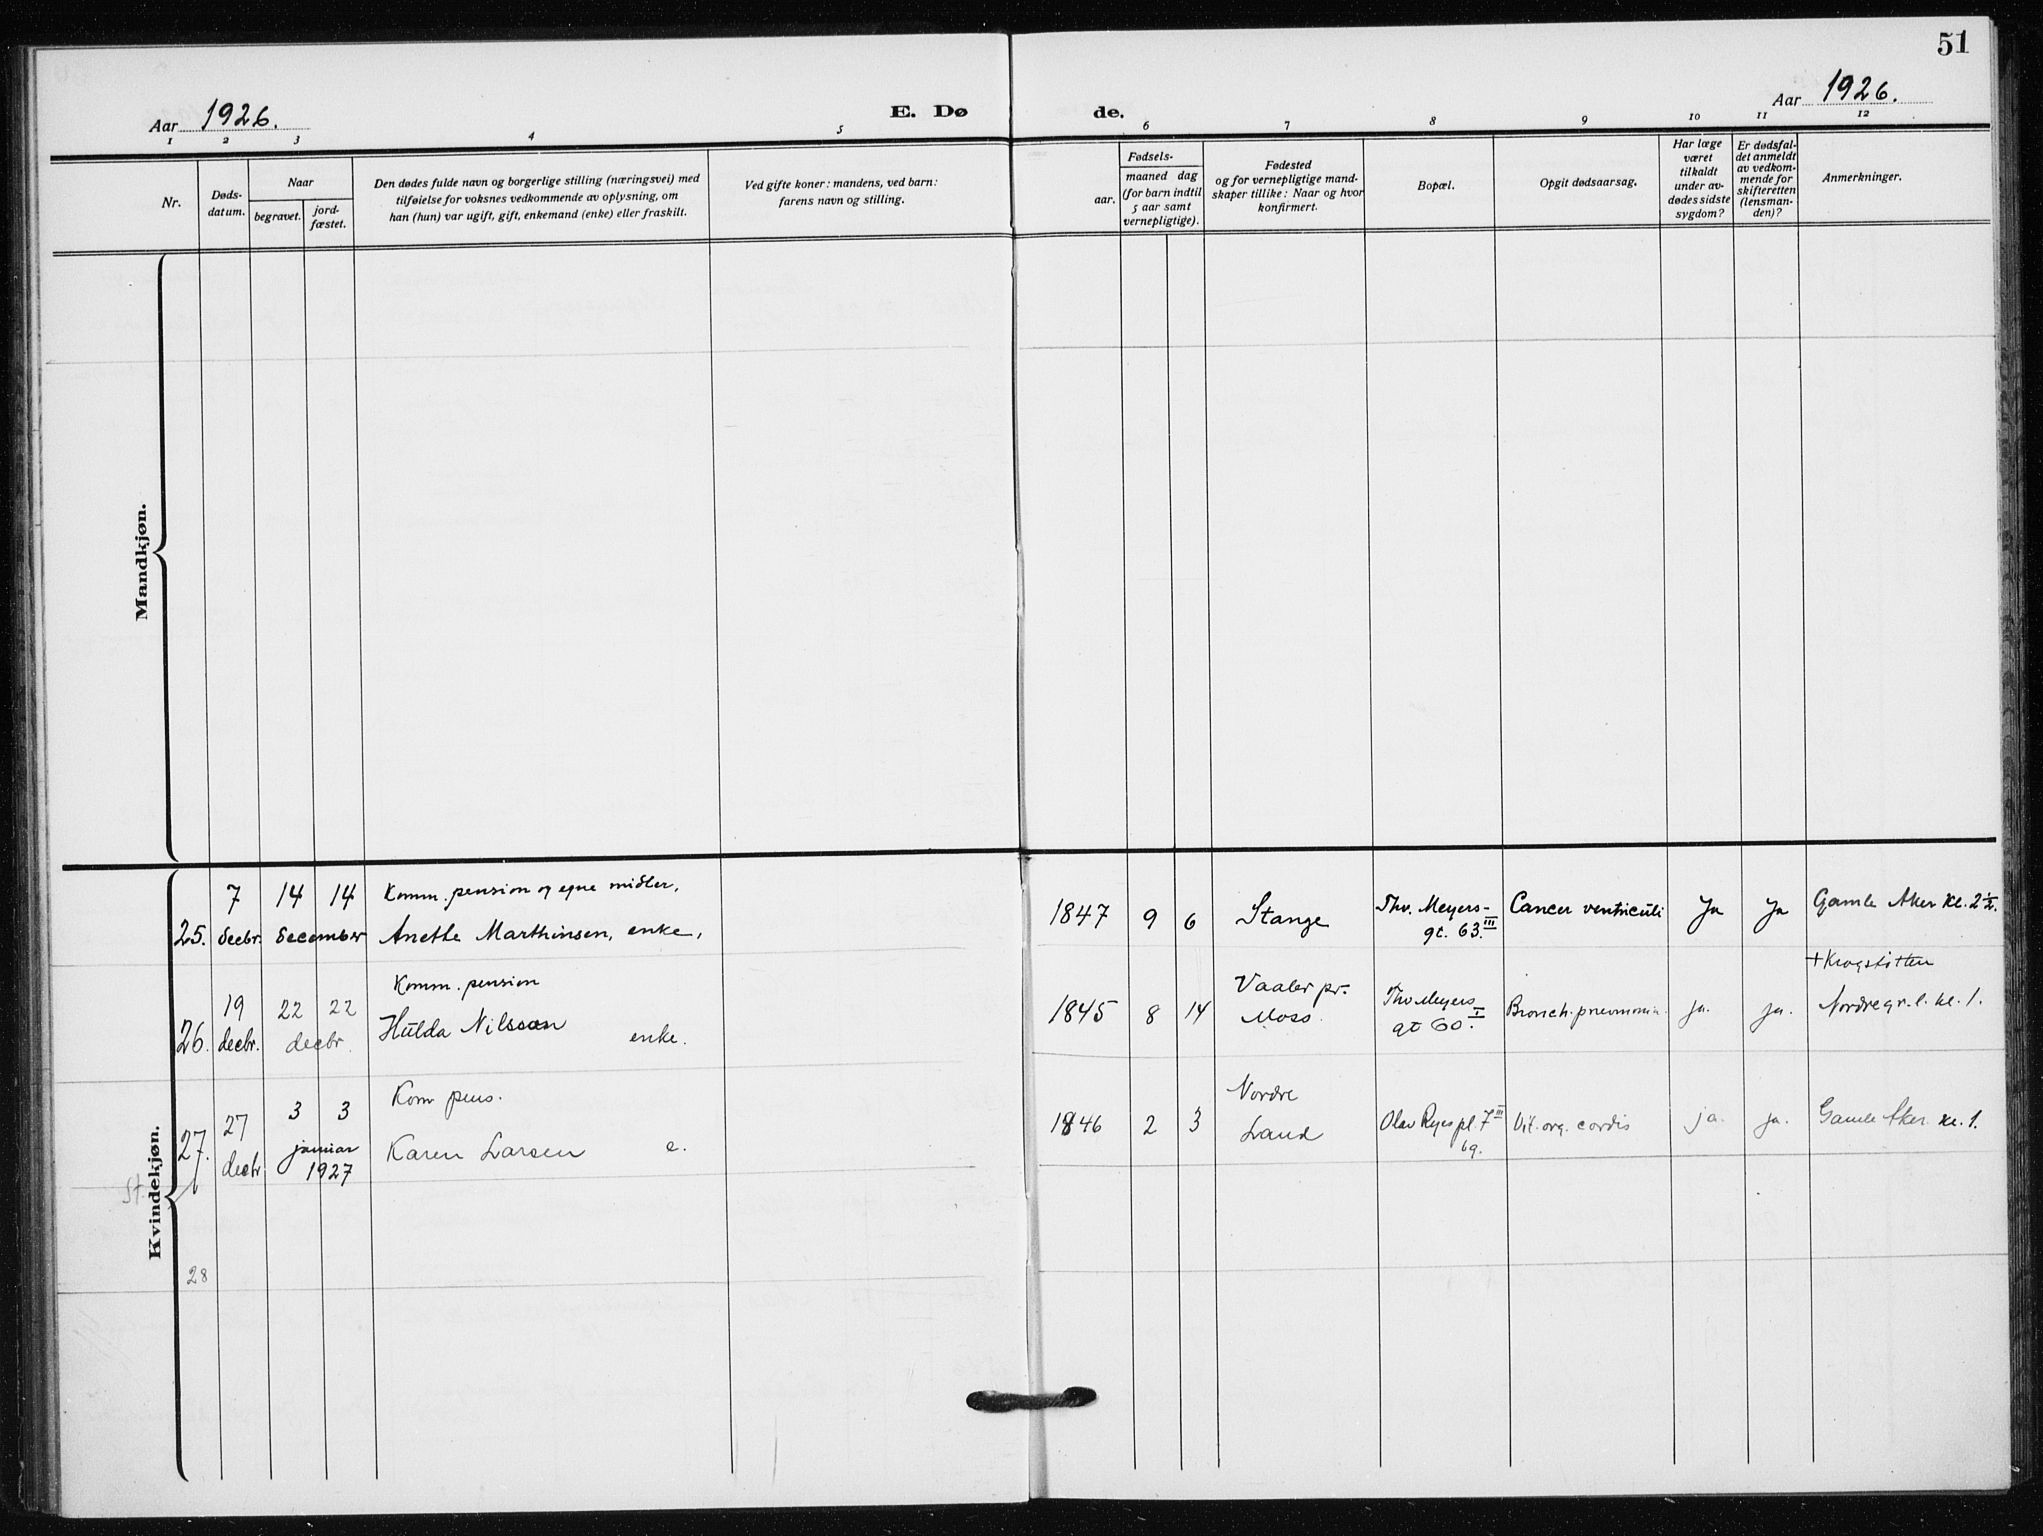 51
Aar 1926.
E. Dø
de.
Aar 1926.
1 2 3 4 5 6 7 8 9 10 11 12
Nr.
Døds-
datum.
Naar
begravet.
jord-
fæstet.
Den dødes fulde navn og borgerlige stilling (næringsvei) med
tilføielse for voksnes vedkommende av oplysning, om
han (hun) var ugift, gift, enkemand (enke) eller fraskilt.
Ved gifte koner: mandens, ved barn:
farens navn og stilling.
Fødsels-
aar.
maaned dag
(for barn indtil
5 aar samt
vernepligtige).
Fødested
og for vernepligtige mand-
skaper tillike: Naar og hvor
konfirmert.
Bopæl.
Opgit dødsaarsag.
Har læge
været
tilkaldt
under av-
dødes sidste
sygdom?
Er dødsfal-
det anmeldt
av vedkom-
mende for
skifteretten
(lensman-
den)?
Anmerkninger.
Mandkjøn.
Kvindekjøn.
7 14 14 Komm. pension og egne midler,
25. decbr. december Anette Marthinsen, enke,
1847 9 6 Stange
Thv. Meyers-
gt. 63.III
Cancer ventriculi Ja Ja Gamle Aker kl. 2½.
Komm. pension
19 22 22
26. decbr. decbr. Hulda Nilsson enke.
1845 8 14
Vaaler pr.
Moss.
Thv Meyers
gt 60.I
Bronch. pneumonia. ja. ja.
+Krogstøtten
Nordre gr. l. kl. 1.
Kom pens.
27 3 3
27. decbr januar
1927
Karen Larsen e.
1846 2 3
Nordre
Land
Olav Ryes pl. 7III
69.
Vit. org. cordis ja. ja. Gamle Aker kl. 1.
St.
28